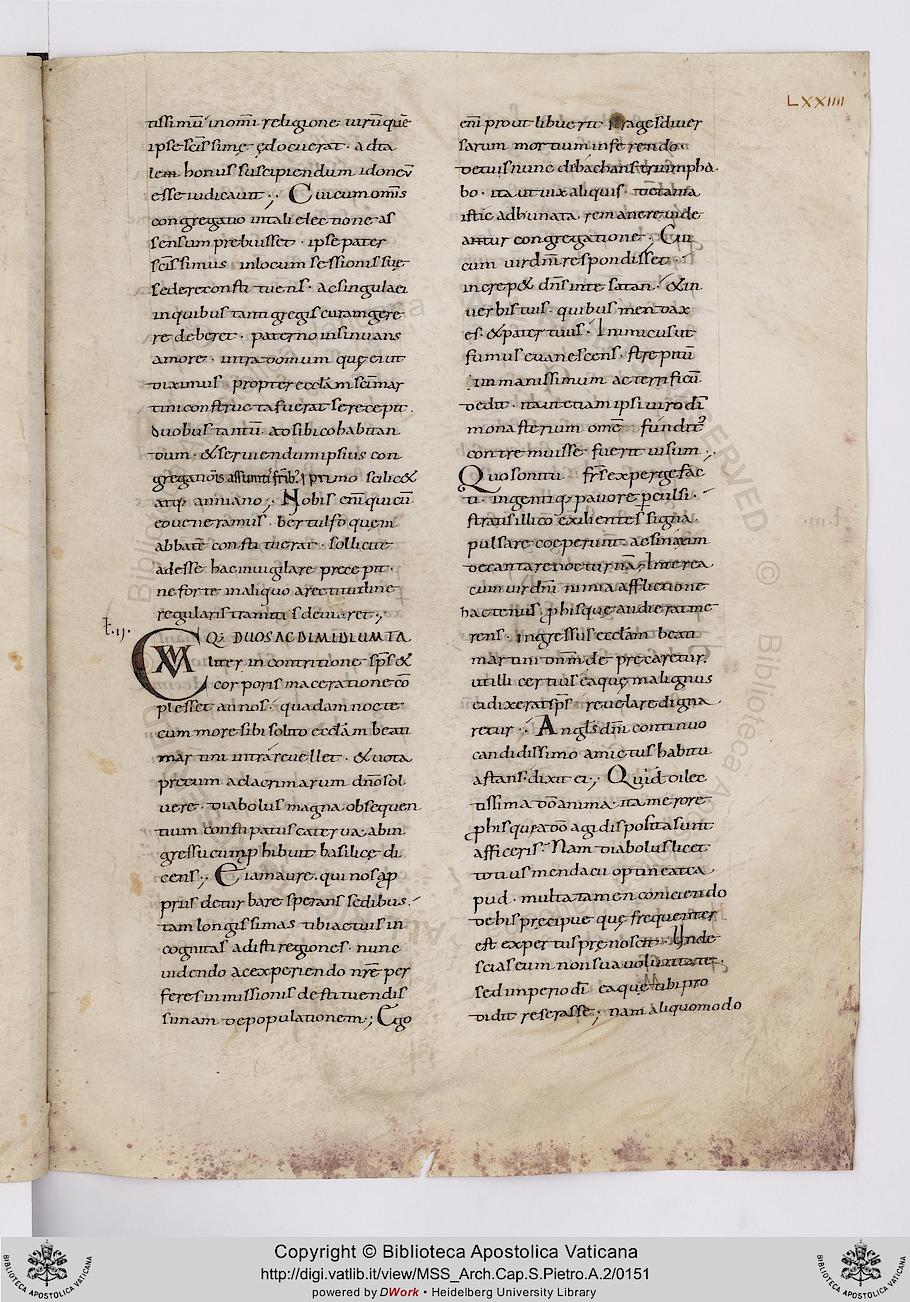 LXXIIII
tissimū in om̄i religione uirū que
ipse scīssime edocuerat · ad ta
lem honus suscipiendum idoneū
esse iudicauit ·, Cui cum omīs
congregatio in tali electione as
sensum prebuisset · ipse pater
scīssimus in locum sessionis suę
sedere constituens · ac singula ei
in quibus tanti gregis curam gere
re deberet · paterno insinuans
amore · intra domum quę ei ut
diximus propter ecclām scī mar
tini constructa fuerat se recepit ·
duobus tantū · ad sibi cohabitan
dum · & seruiendum ipsius con
gregationis assumtis frib; primo scilic&
atq; anniano ·, Nobis enī qui cū
eo ueneramus · bertulfo quem
abbatē constituerat · sollicite
adesse hac inuiglare precepit ·
ne forte in aliquo a rectitudine
regularis tramitis deuiaret ·,
t. ij.
CVM Q; DUOS AC DIMIDIUM TA
liter in contritione sp̄s &
corporis maceratione cō
plesset annos · quadam nocte
cum more sibi solito ecclām beati
martini intrare uellet · & uota
precum ac lacrimarum dnō sol
uere · diabolus magna obsequen
tium constipatus caterua ab in
gressu eum phibuit basilicę di
cens ·, Eia maure · qui nos a p
priis deturbare sperans sedibus ·
tam longissimas tibi actus in
cognitas adisti regiones · nunc
uidendo ac experiendo nrē per
feres inmissionis destituendis
sunam depopulationem ; Ego
enī prout libuerit strages diuer
sarum mortium inferendo ·
de tuis nunc dibachans triumpha
bo · ita ut uix aliquis · de tanta
istic adhunata · remanere uide
antur congregatione · Cui
cum uir dnī respondisset ·
increp& dn̄s in te satan · & in
uerbis tuis · quibus mendax
es & pater tuus · Inimicus ut
fumus euanescens · strepitū
inmanissimum ac terrificū
dedit · ita ut etiam ipsi uiro dī
monasterium omē funditꝰ
contremuisse fuerit uisum ·,
Quo sonitu frs̄ expergefac
ti · ingentiq; pauore pculsi ·
stratis illico exilientes signa
pulsare coeperunt · ac sinaxim
decantare nocturnā ; Interea
cum uir dnī nimia afflictione
hactenus · p his que audierat me
rens · ingressus ecclām beati
martini dnm̄ deprecaretur ·
ut illi certius ea quę malignus
ei dixerat sp̄s · reuelare digna
retur ·, Angls̄ dnī continuo
candidissimo amictus habitu
astans · dixit ei ·, Quid dilec
tissima dō anima · ita merore
p his que a dō agi disposita sunt
afficeris · Nam diabolus licet
totius mendacii optineat ca
pud · multa tamen coniciendo
de his precipue quę frequenter
est expertus prenoscit · Unde
scias eum non sua uoluntate ·
sed imperio dī ea quę tibi pro
didit reserasse ; nam aliquomodo
Copyright © Biblioteca Apostolica Vaticana
http://digi.vatlib.it/view/MSS_Arch.Cap.S.Pietro.A.2/0151
powered by DWork • Heidelberg University Library
BIBLIOTECA APOSTOLICA VATICANA
BIBLIOTECA APOSTOLICA VATICANA